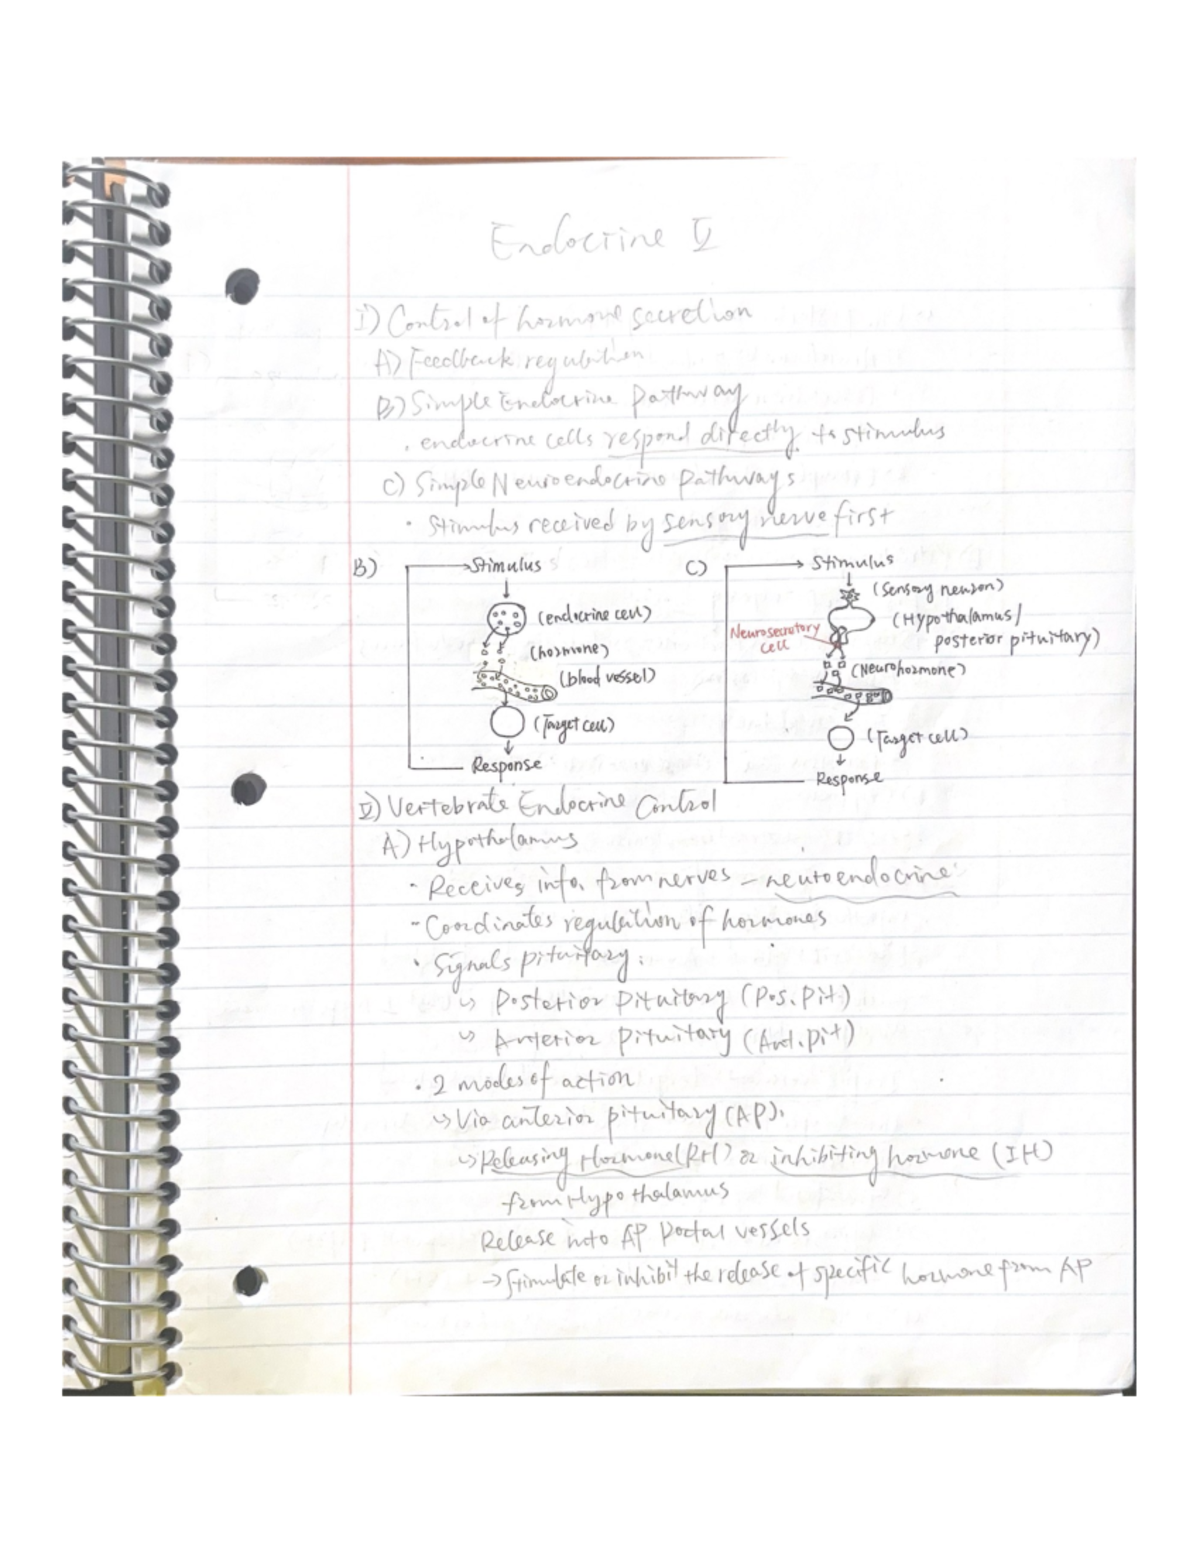 Endocrine II
I) Control of hormone secretion
A) Feedback regulation
B) Simple Endocrine Pathway
· endocrine cells respond directly to stimulus
C) Simple Neuroendocrine Pathways
· Stimulus received by sensory nerve first
B) Stimulus
(endocrine cell)
(hormone)
(blood vessel)
(Target cell)
Response
C) Stimulus
(Sensory neuron)
(Hypothalamus/
posterior pituitary)
Neurosecretory
cell
(Neurohormone)
(Target cell)
Response
II) Vertebrate Endocrine Control
A) Hypothalamus
· Receives info. from nerves – neuroendocrine
- Coordinates regulation of hormones
· Signals pituitary:
↳ Posterior Pituitary (Pos. Pit)
↳ Anterior Pituitary (Ant. Pit)
· 2 modes of action
↳ Via anterior pituitary (AP):
↳ Releasing Hormone (RH) or inhibiting hormone (IH)
from Hypothalamus
Release into AP Portal vessels
→ Stimulate or inhibit the release of specific hormone from AP